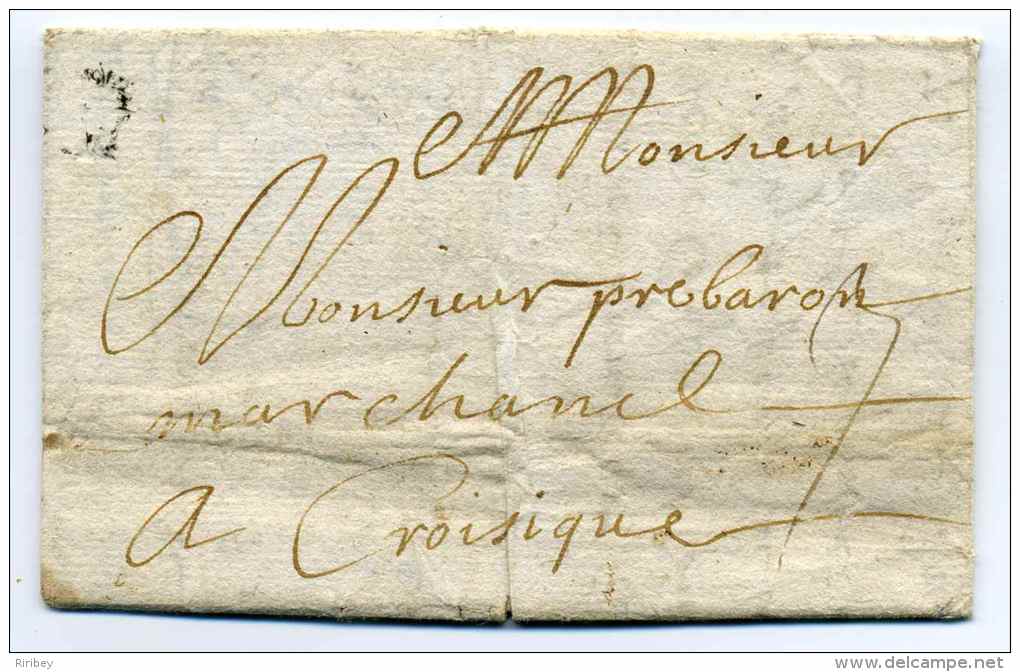 Monsieur
Monsieur probaron
marchand
A Croisique
Riribey
©delcampe.net